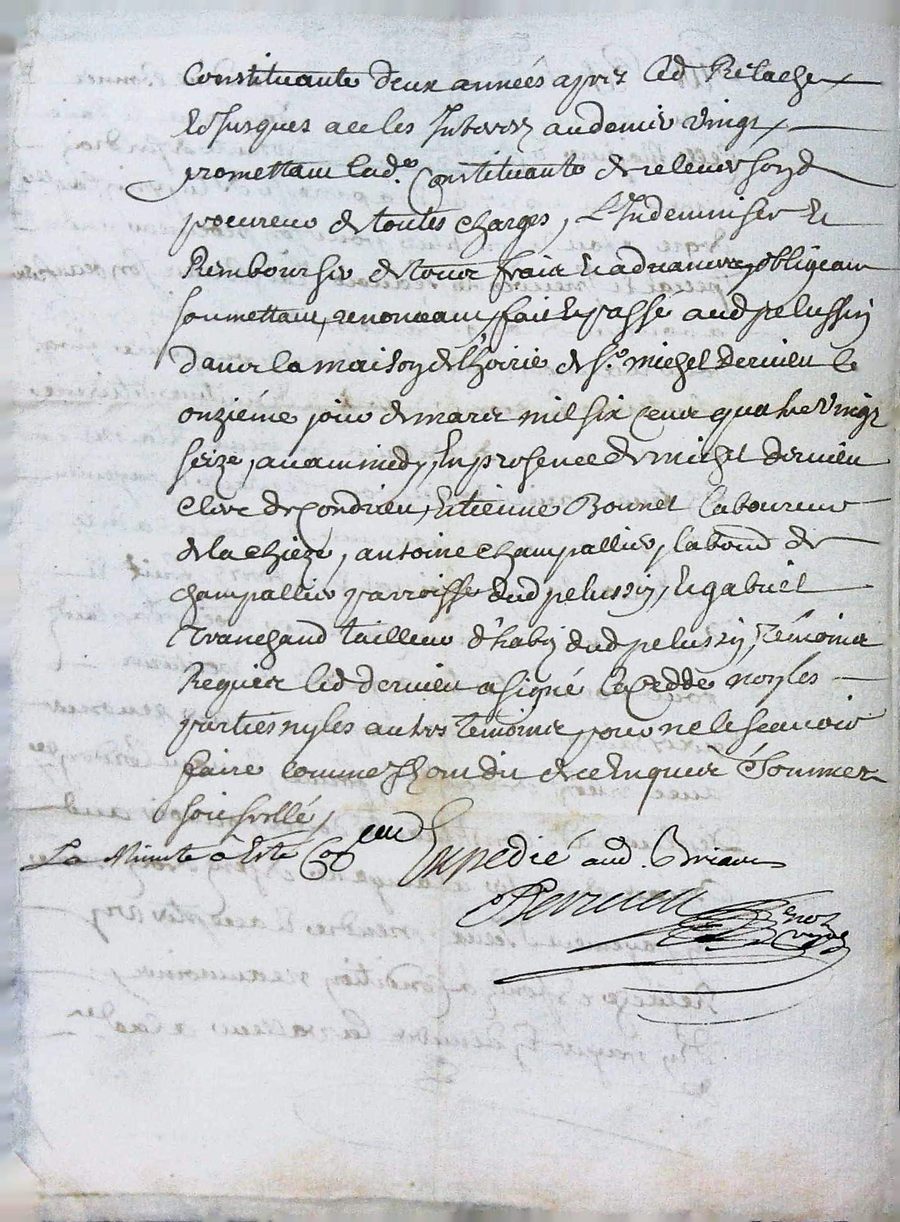 Constituante deux années apres led Relache
Et Jusques a ce les Interetz au denier vingt
promettant lad.e Constituante de relever sond
procureur de toutes charges, L'Indemniser Et
Rembourser de tous frais Et advances, obligeant
soumettant, renonceant, fait Et passé aud pelussin
dans la maison de l'hoirie de Sr michel dervieu le
onziéme jour de mars mil six cens quatre vingt
seize, avant midy, En presence de michel dervieu
Clerc de Condrieu, Etienne Bonnet laboureur
de la Chieze, antoine Champallier, labour de
Champallier parroisse dud pelussin, Et gabriel
Tranchand tailleur d'habis dud pelussin, Témoins
Requis led dervieu a signé la cedde non les
parties ny les autres Temoins, pour ne le scavoir
faire comme Ils ont dit de ce Enquis & Sommez
soit scellé,
La Minute a Esté
Expedié aud. Briand
Dervieu